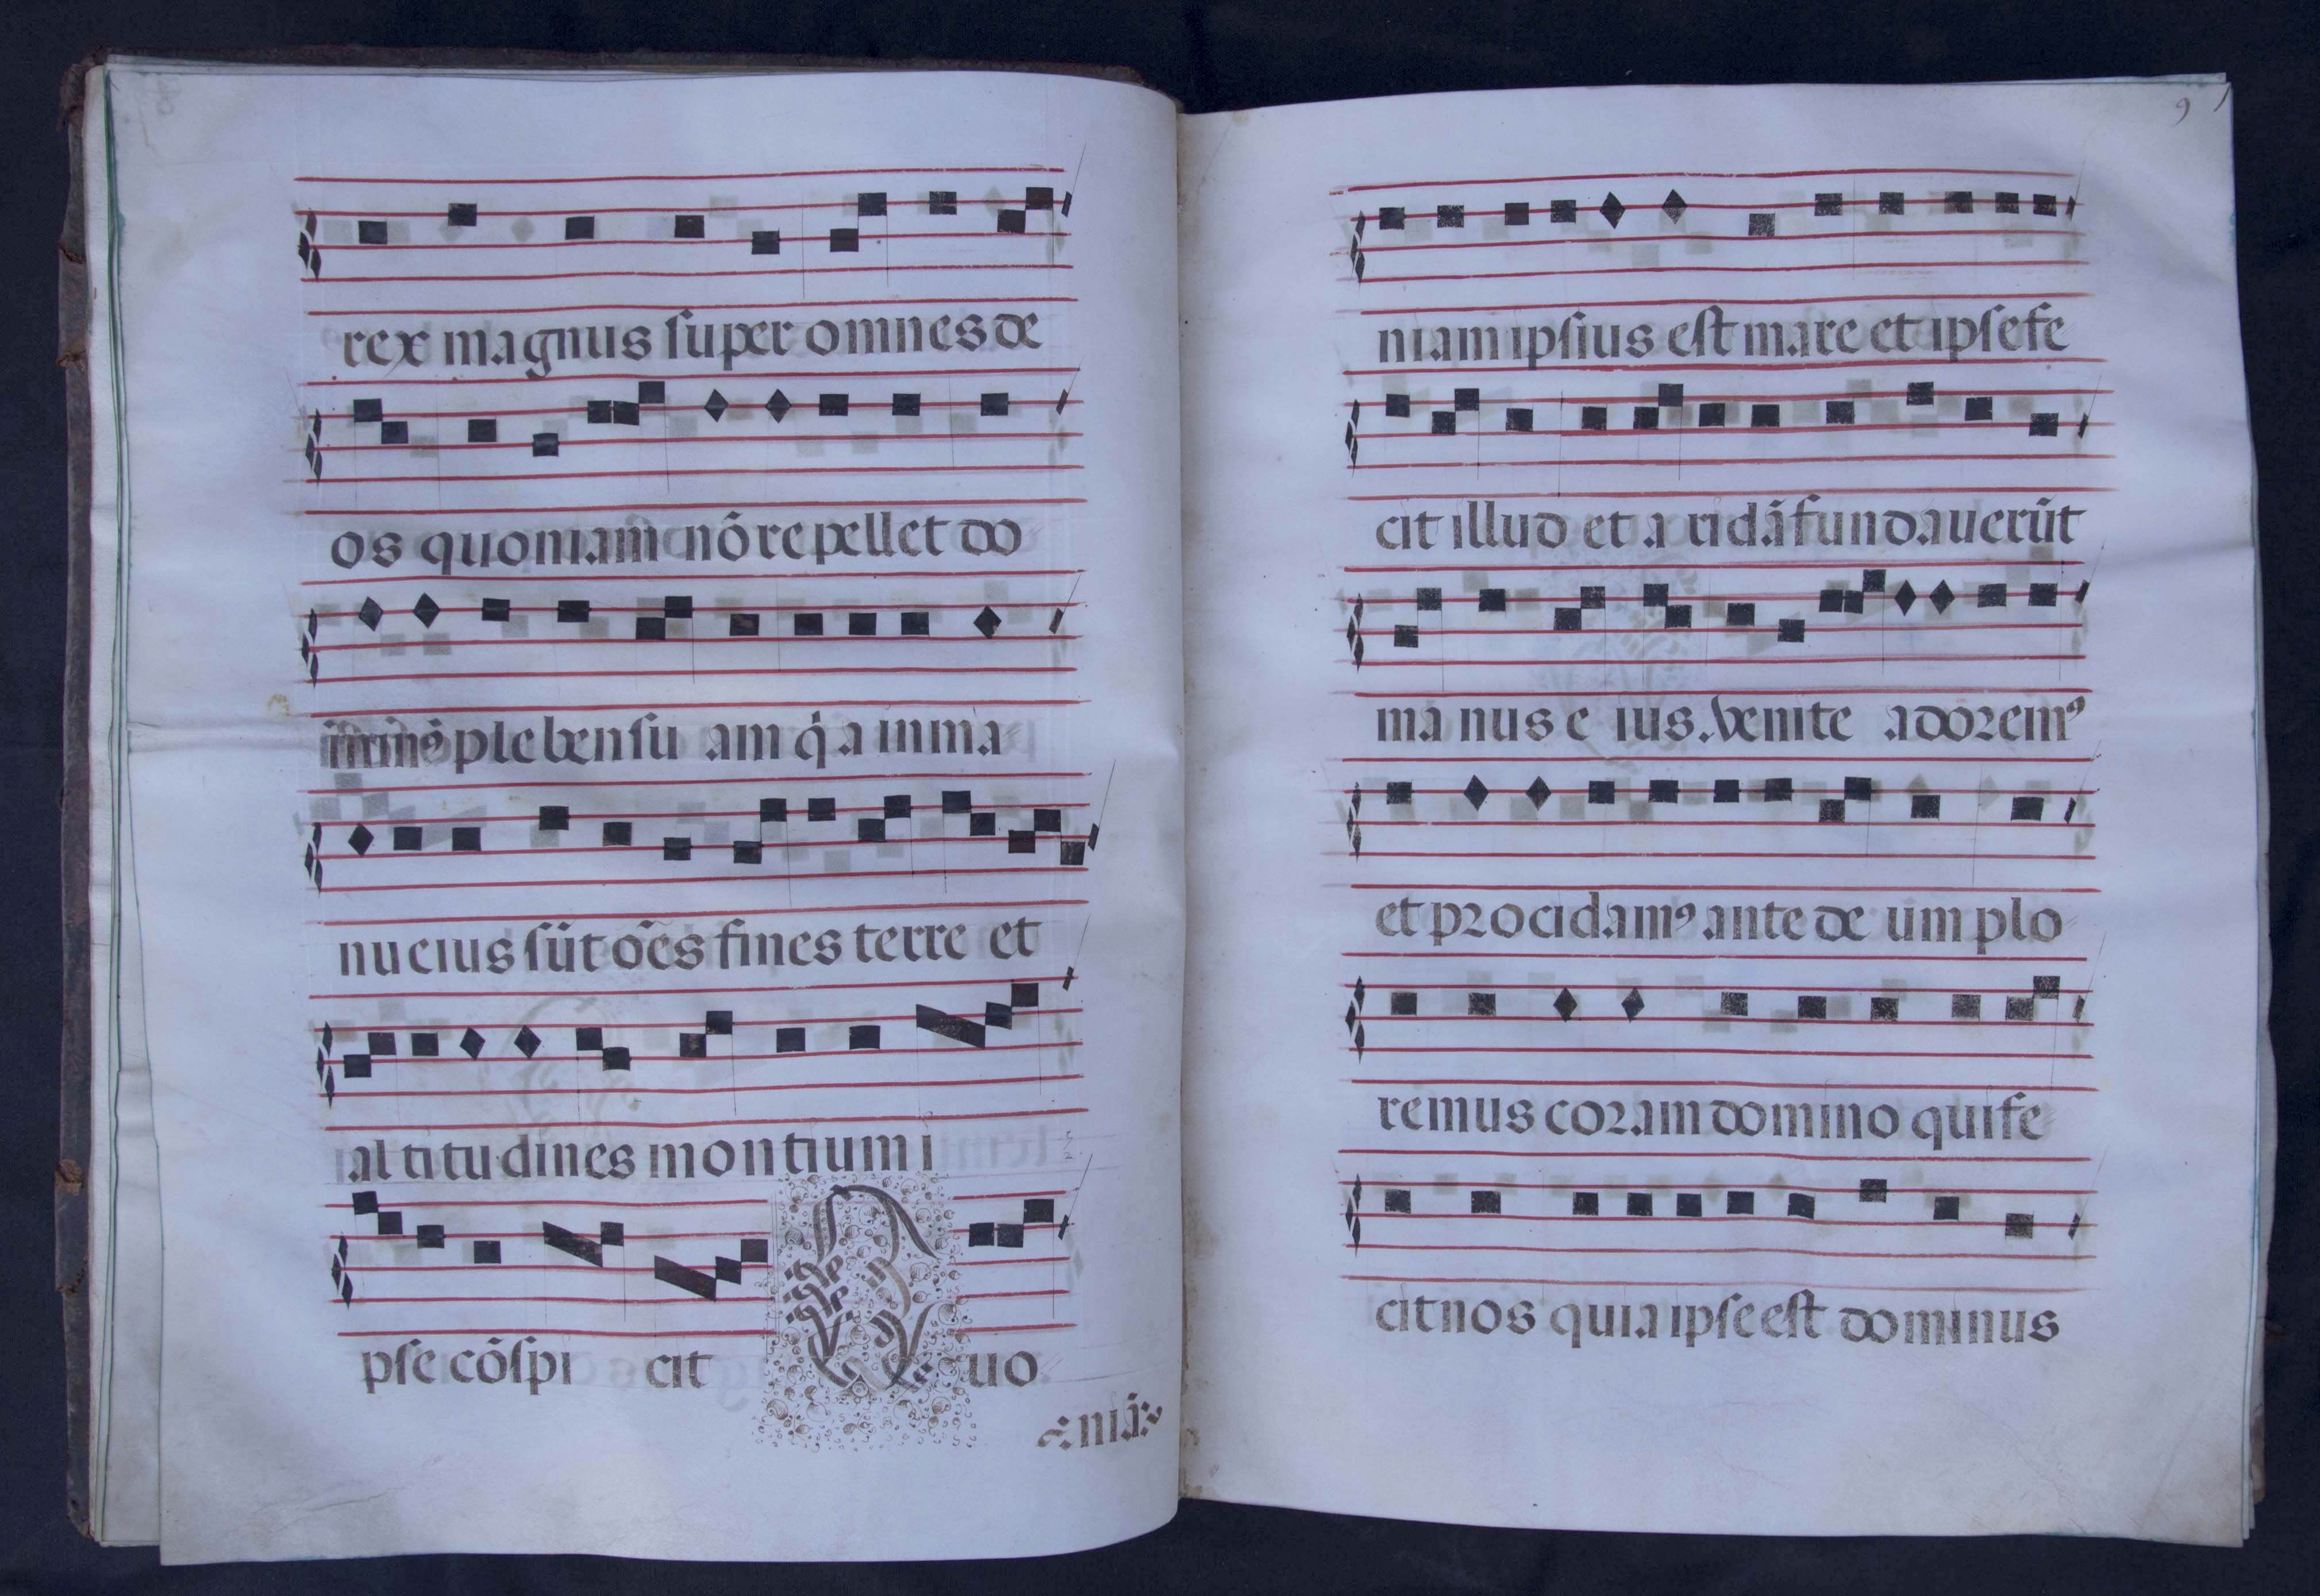 rex magnus ſuper omnes de
os quoniam nõ repellet do
plebem ſu am q̇a in ma
nu eius ſũt oẽs fines terre et
al titudines montium i
pſe cõſpi cit Quo
niã
9
niam ipſius eſt mare et ipſe fe
cit illud et a ridã fundauerũt
ma nus e ius. Venite adoremꝰ
et procidamꝰ ante de um plo
remus coram domino qui fe
cit nos quia ipſe eſt dominus